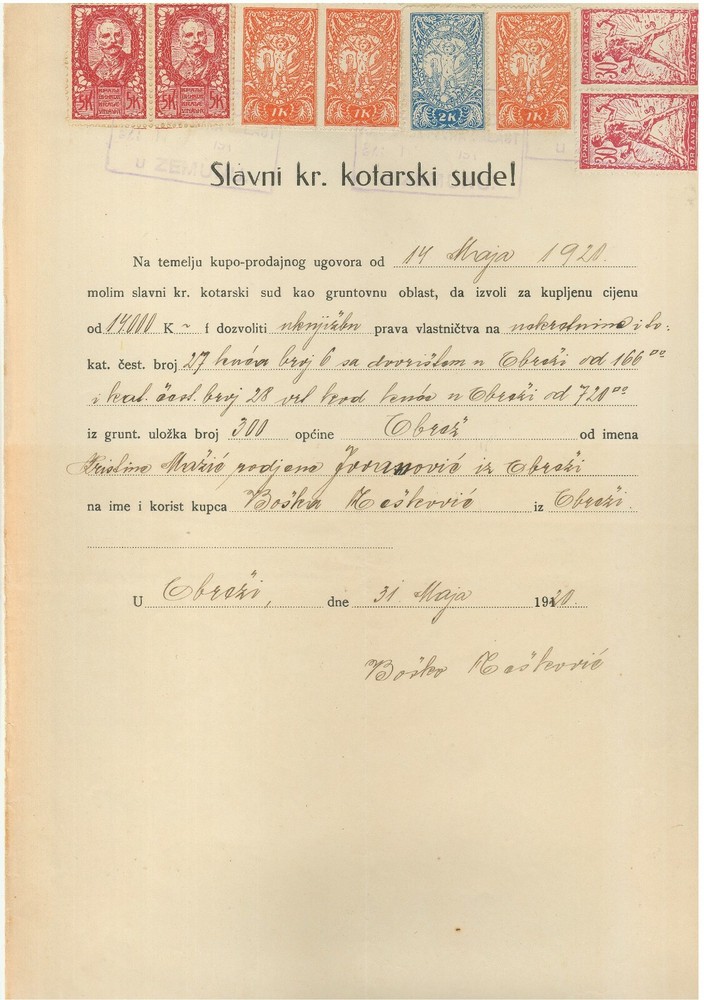 5K 5K 1K 1K 2K 1K 30 ДРЖАВА СХС DRŽAVA SHS
30 ДРЖАВА СХС DRŽAVA SHS
U ZEMU
Slavni kr. kotarski sude!
Na temelju kupo-prodajnog ugovora od 14 Maja 1920.
molim slavni kr. kotarski sud kao gruntovnu oblast, da izvoli za kupljenu cijenu
od 14000 K ~ f dozvoliti uknjižbu prava vlastničtva na nekretnine i ko-
kat. čest. broj 27 kuća broj 6 sa dvorištem u Obreži od 166
i kat. čest. broj 28 vrt kod kuće u Obreži od 720
iz grunt. uložka broj 300 općine Obrež od imena
Kristine Mažić rodjene Jovanović iz Obreži
na ime i korist kupca Boška Rešković iz Obreži.
U Obreži, dne 31. Maja 1920.
Boško Rešković